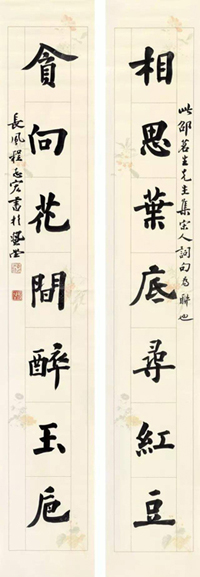 相思葉底尋紅豆
此邵茗生先生集宋人詞句為聯也
貪向花間醉玉卮
長風程